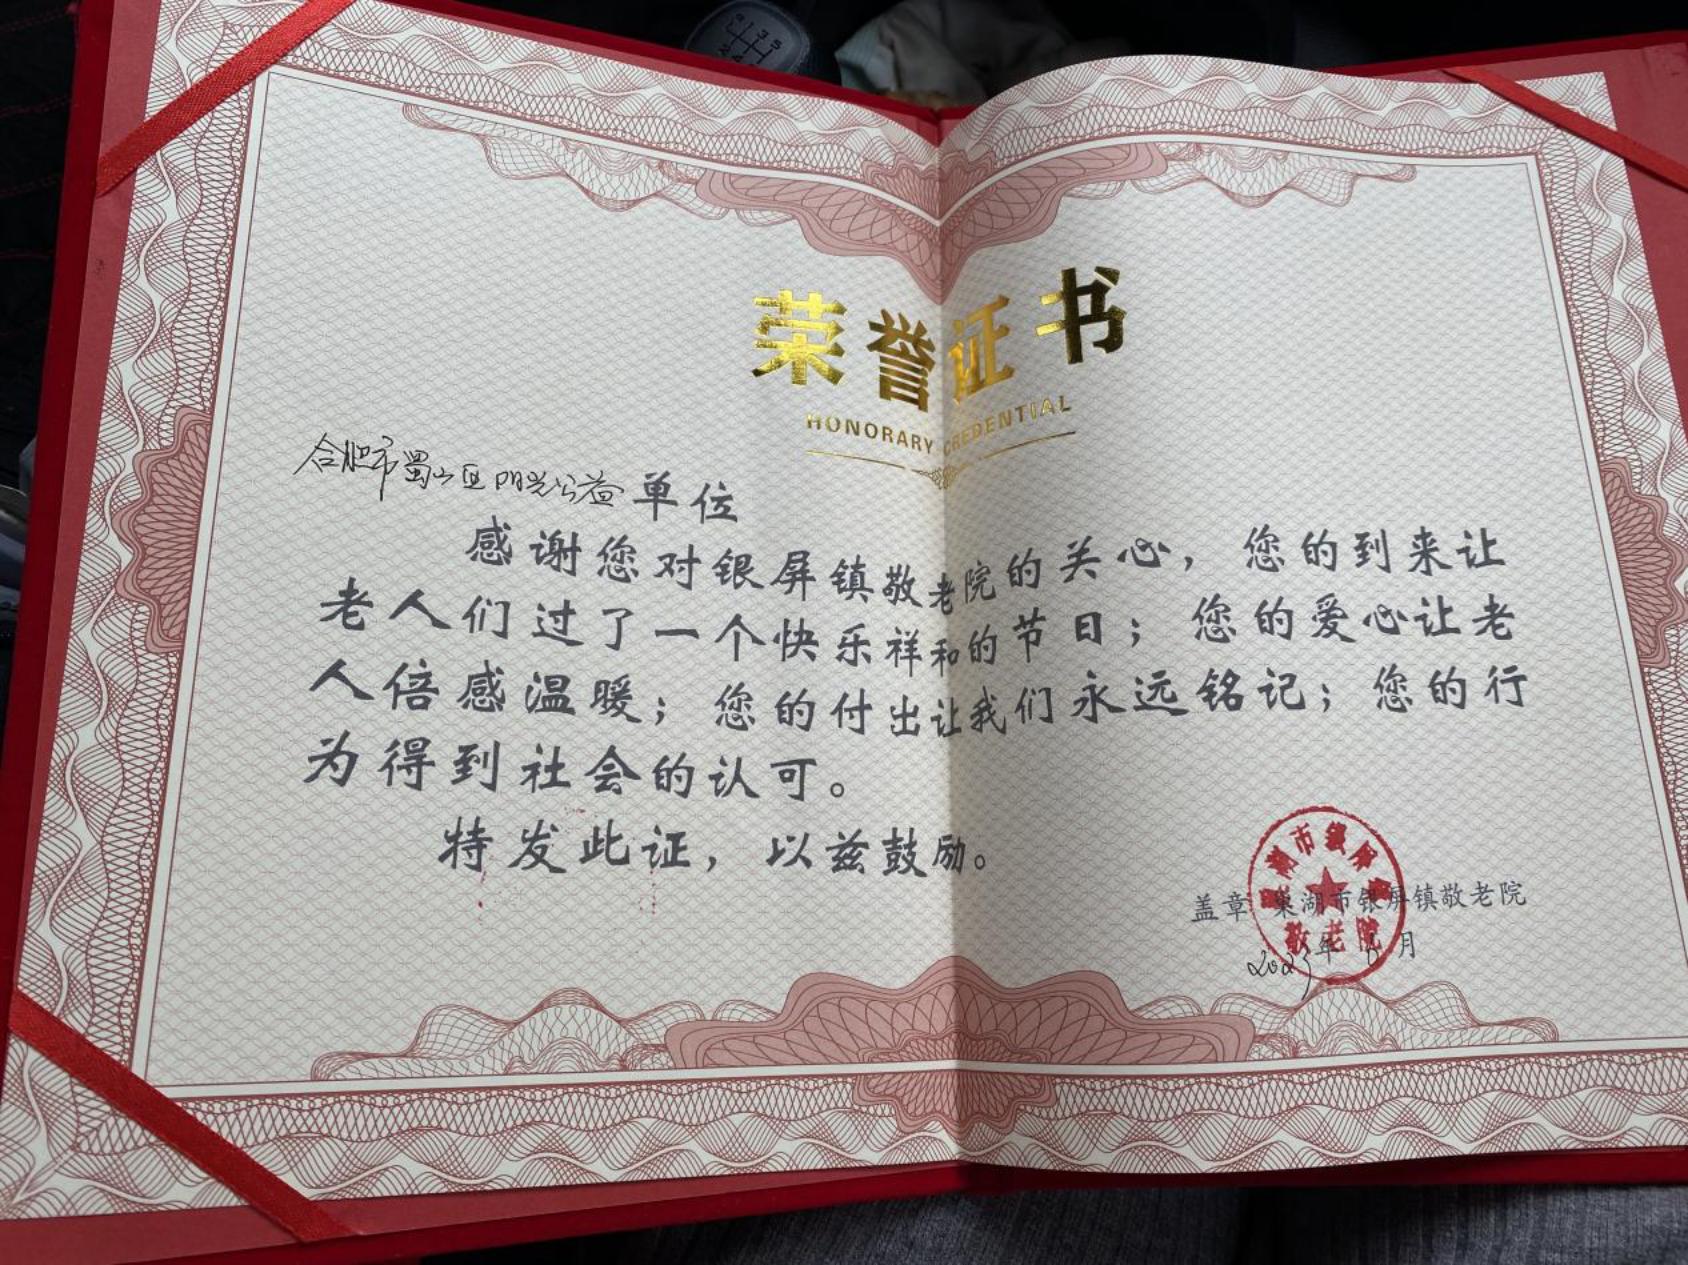 荣誉证书
HONORARY CREDENTIAL
合肥市蜀山区阳光公益单位
感谢您对银屏镇敬老院的关心，您的到来让
老人们过了一个快乐祥和的节日；您的爱心让老
人倍感温暖；您的付出让我们永远铭记；您的行
为得到社会的认可。
特发此证，以兹鼓励。
盖章 巢湖市银屏镇敬老院
2023年 月
巢湖市银屏镇
敬老院